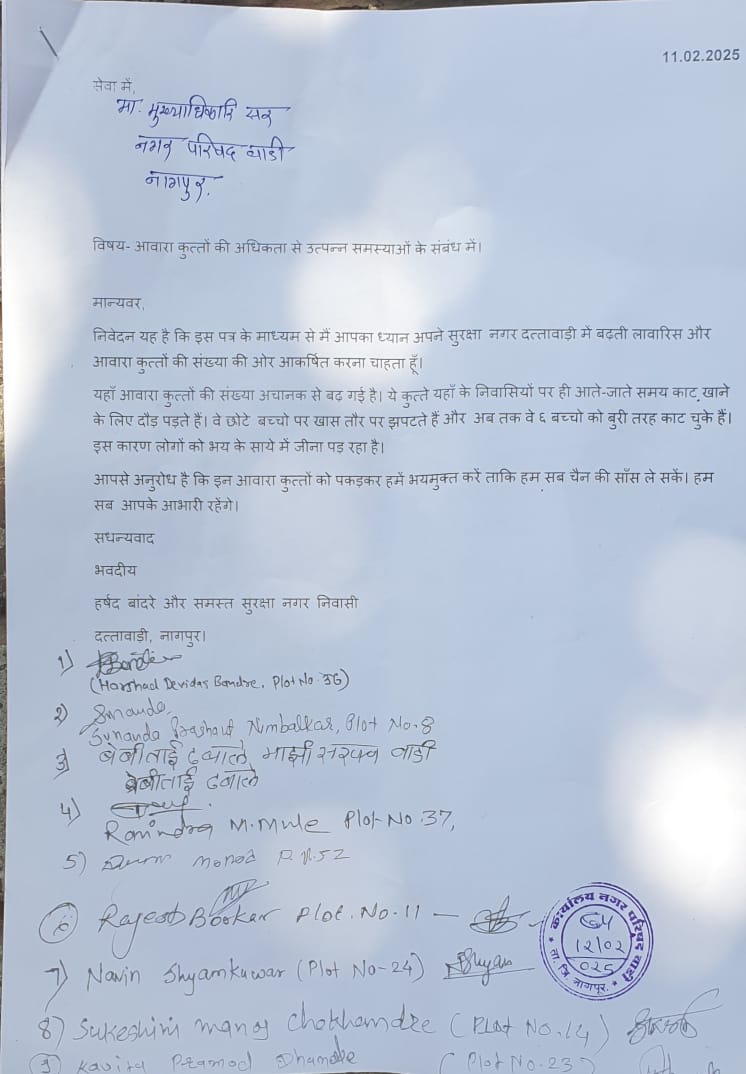 11.02.2025
सेवा में,
मा. मुख्याधिकारि सर
नगर परिषद वाडी
नागपुर.
विषय- आवारा कुत्तों की अधिकता से उत्पन्न समस्याओं के संबंध में।
मान्यवर,
निवेदन यह है कि इस पत्र के माध्यम से मैं आपका ध्यान अपने सुरक्षा नगर दत्तावाड़ी में बढ़ती लावारिस और
आवारा कुत्तों की संख्या की ओर आकर्षित करना चाहता हूँ।
यहाँ आवारा कुत्तों की संख्या अचानक से बढ़ गई है। ये कुत्ते यहाँ के निवासियों पर ही आते-जाते समय काट खाने
के लिए दौड़ पड़ते हैं। वे छोटे बच्चो पर खास तौर पर झपटते हैं और अब तक वे ६ बच्चो को बुरी तरह काट चुके हैं।
इस कारण लोगों को भय के साये में जीना पड़ रहा है।
आपसे अनुरोध है कि इन आवारा कुत्तों को पकड़कर हमें भयमुक्त करें ताकि हम सब चैन की साँस ले सकें। हम
सब आपके आभारी रहेंगे।
सधन्यवाद
भवदीय
हर्षद बांदरे और समस्त सुरक्षा नगर निवासी
दत्तावाड़ी, नागपुर।
1)
(Harshad Devidas Bandre, Plot No. 36)
2) Sunanda
Sunanda Prashant Nimbalkar, Plot No. 8
3) बेबीताई ढबाले, माझी सरपंच वाडी
बेबीताई ढबाले
4)
Ravindra M. Mule Plot No. 37,
5) P.N. 52
6) Rajesh Borkar Plot. No. 11 -
7) Navin Shyamkuwar (Plot No-24) Shyam
8) Sukeshini manoj Chokhandre (Plot No. 14)
9) Kavita Pramod Dhamde (Plot No. 23)
कार्यालय नगर परिषद वाडी
12/02
025
ता. जि. नागपूर.